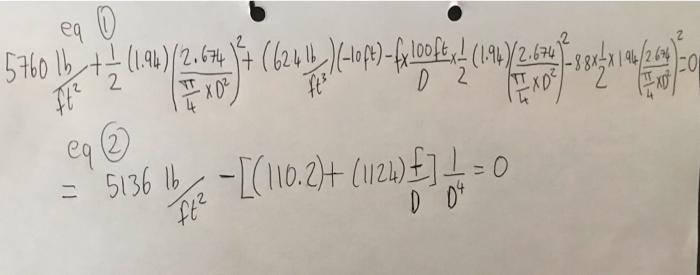 eq ①
5760 lb/ft² + 1/2 (1.94) (2.674/(π/4 × D²))² + (62.4 lb/ft³)(-10ft) - f × 100ft/D × 1/2 (1.94) (2.674/(π/4 × D²))² - 8.8 × 1/2 × 1.94 (2.674/(π/4 × D²))² = 0
eq ②
= 5136 lb/ft² - [(110.2) + (1124) f/D] 1/D⁴ = 0